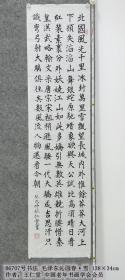 北國風光千里冰封萬里雪飄望長城内外惟餘莽莽大河上
下頓失滔滔山舞銀蛇原馳蠟象欲與天公試比高須晴日看
紅裝素裹分外妖嬈江山如此多嬌引無數英雄競折腰惜秦
皇漢武略輸文采唐宗宋祖稍遜風騷一代天驕成吉思汗只
識彎弓射大雕俱往矣數風流人物還看今朝
86707号书法 毛泽东沁园春•雪 138×34cm
作者:王仁堂 中国老年书画学会会员